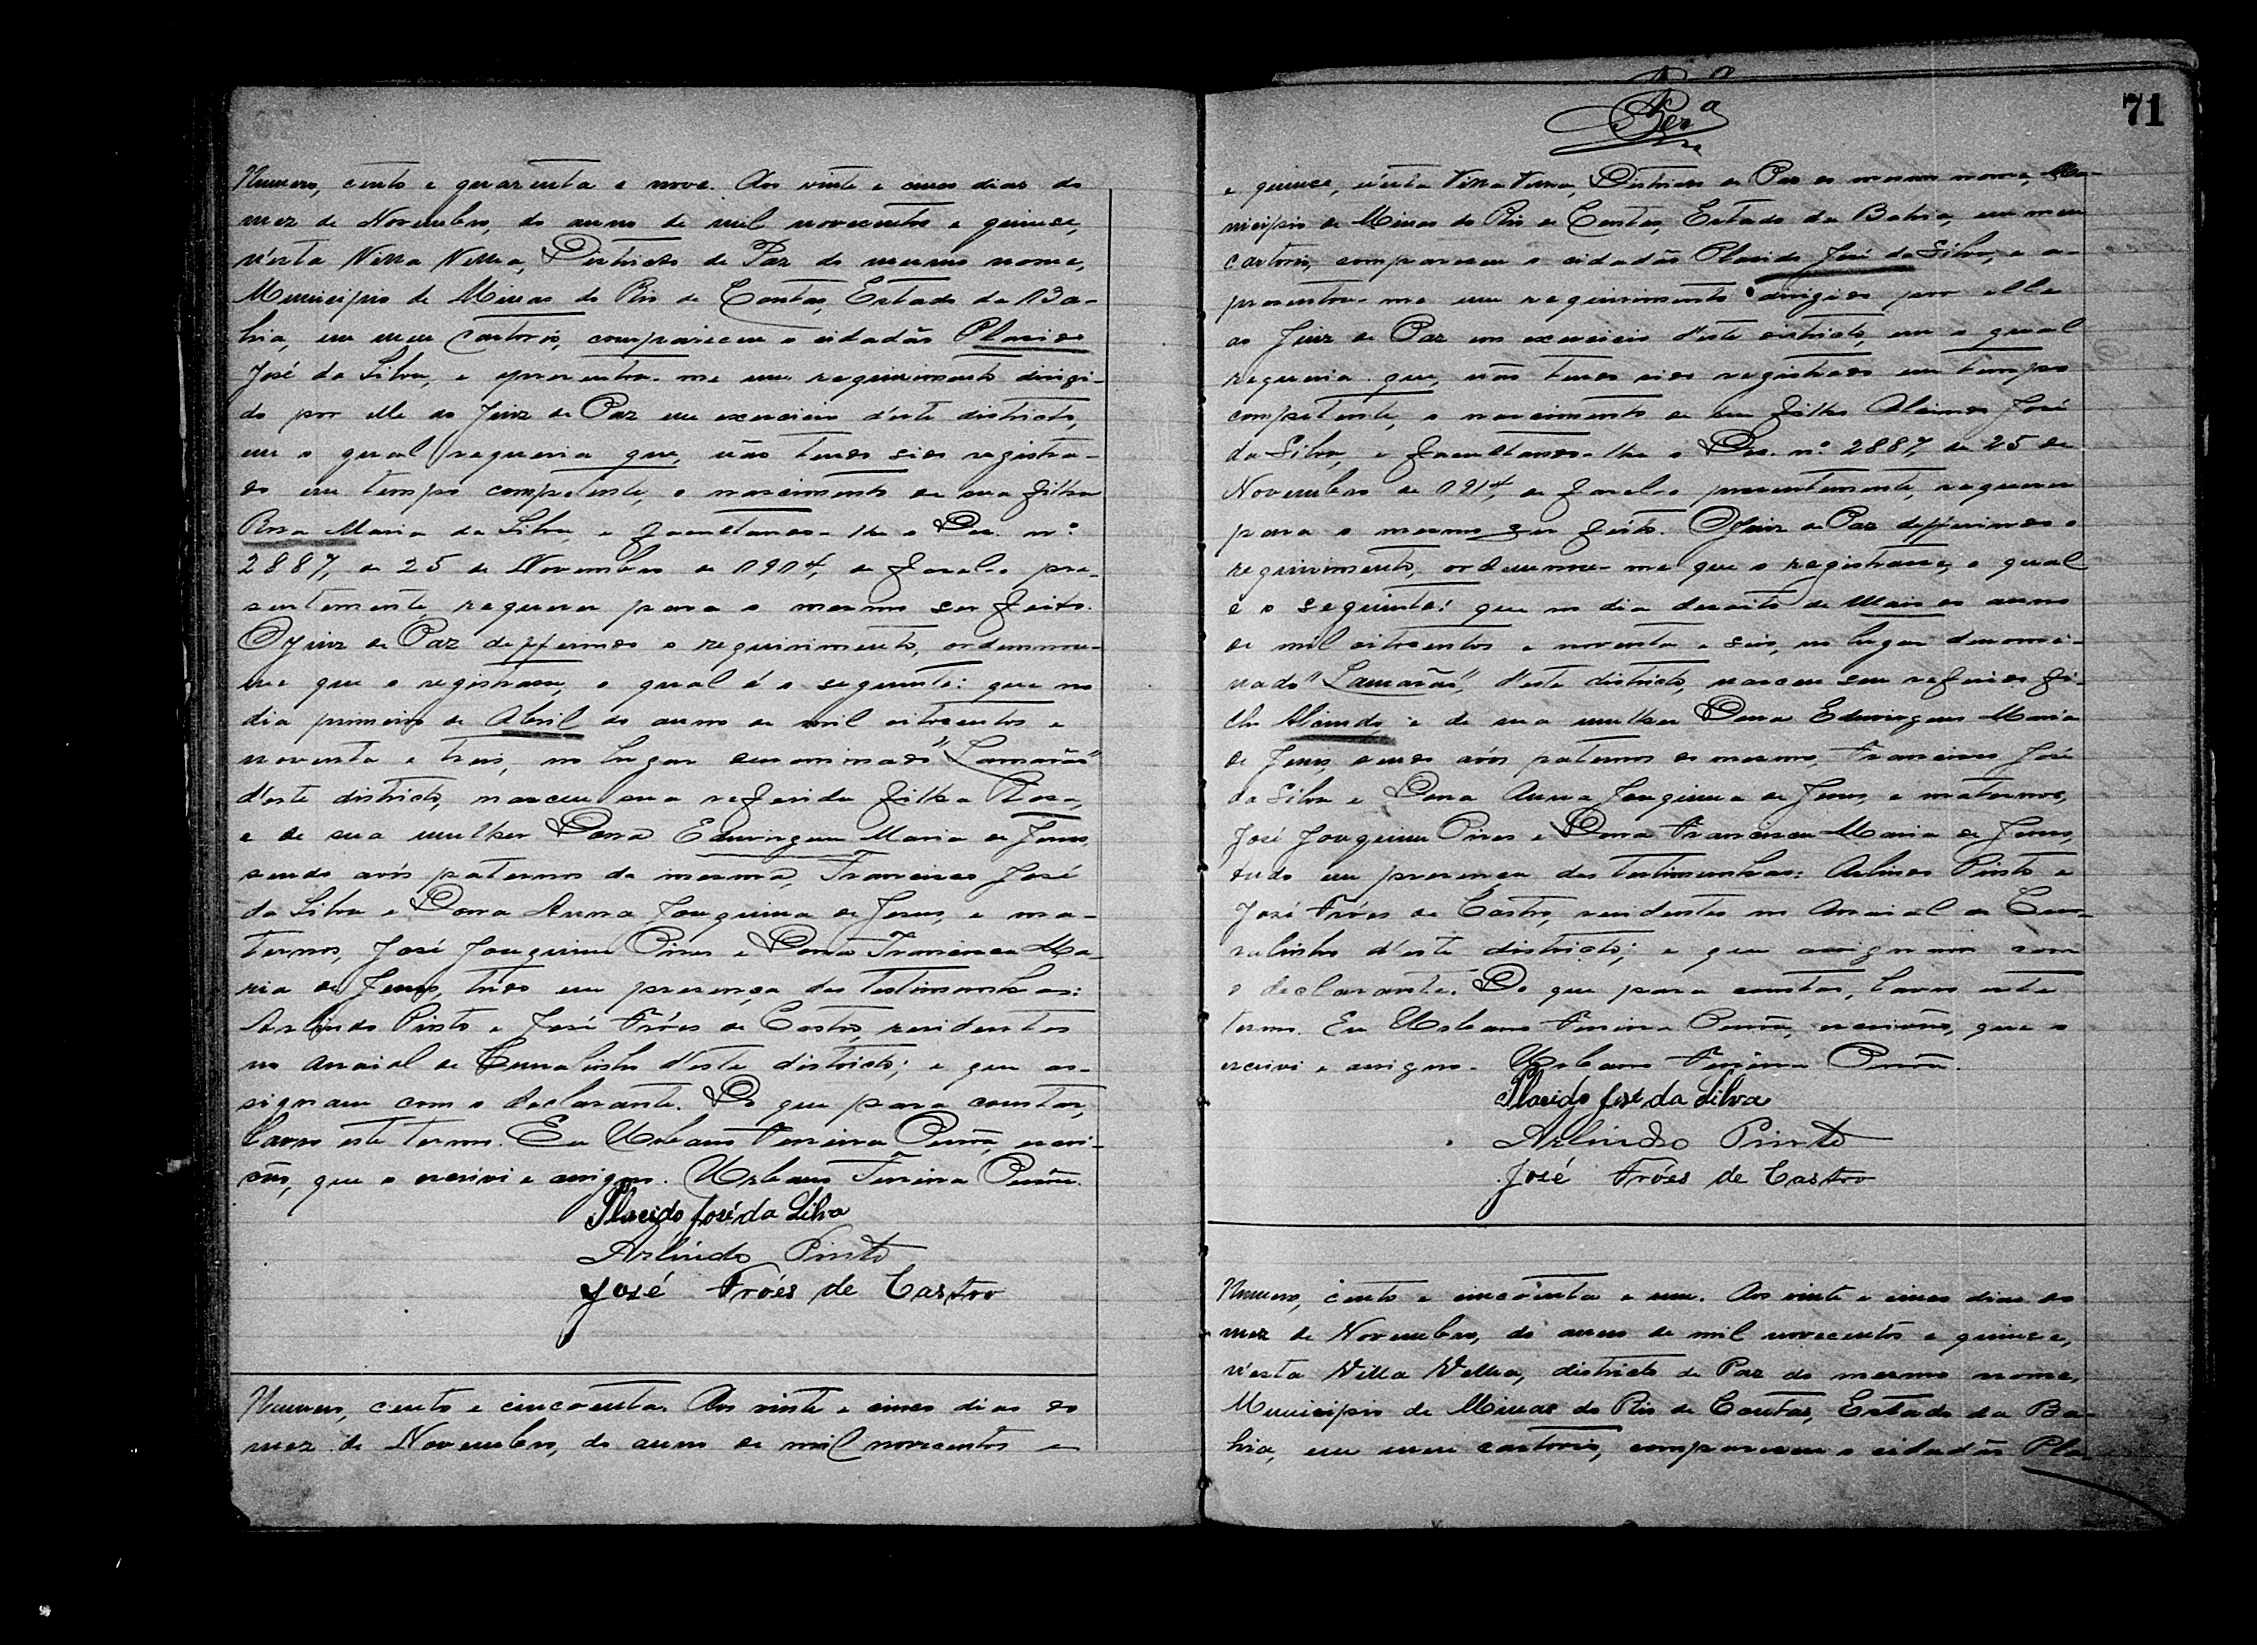 Numero, cento e quarenta e nove. Aos vinte e cinco dias do
mez de Novembro, do anno de mil novecentos e quinse,
n'esta Villa Velha, Districto de Paz do mesmo nome,
Municipio de Minas do Rio de Contas, Estado da Ba-
hia, em meu cartorio, compareceu o cidadão Placido
José da Silva, e apresentou-me um requirimento dirigi-
do por elle ao Juiz de Paz em exercicio d'este districto,
em o qual requeria que, não tendo sido registra-
do em tempo competente, o nascimento de sua filha
Rosa Maria da Silva, e facultando-lhe o Dec. nº
2887, de 25 de Novembro de 1914, de fazel-o pre-
sentemente, requereu para o mesmo ser feito.
O Juiz de Paz defferindo o requirimento, ordennou-
me que o registrasse, o qual é o seguinte: que no
dia primeiro de Abril do anno de mil oitocentos e
noventa e tres, no lugar denominado "Lamarão"
d'este districto, nasceu sua referida filha Rosa,
e de sua mulher Dona Eduvirgem Maria de Jesus,
sendo avós paternos da mesma, Francisco José
da Silva e Dona Anna Joaquina de Jesus, e ma-
ternos, José Joaquim Pires e Dona Francisca Ma-
ria de Jesus, tudo em presença das testimunhas:
Arlindo Pinto e José Fróes de Castro, residentes
no Arraial de Curralinho d'este districto; e que as-
signam com o declarante. Do que para constar,
lavro este termo. Eu Urbano Ferreira escri-
vão, que o escrivi e assigno. Urbano Ferreira
Placido José da Silva
Arlindo Pinto
José Fróes de Castro
Numero, cento e cincoenta. Aos vinte e cinco dias do
mez de Novembro, do anno de mil novecentos e
71
e quinse, n'esta Villa Velha, Districto de Paz do mesmo nome, Mu-
nicipio de Minas do Rio de Contas, Estado da Bahia, em meu
cartorio, compareceu o cidadão Placido José da Silva, e a-
presentou-me um requirimento dirigido por elle
ao Juiz de Paz em exercicio d'este districto, em o qual
requeria que, não tendo sido registrado em tempo
competente, o nascimento de seu filho Alcindo José
da Silva, e facultando-lhe o Dec. nº 2887, de 25 de
Novembro de 1914, de fazel-o presentemente, requereu
para o mesmo ser feito. O Juiz de Paz defferindo o
requirimento, ordennou-me que o registrasse, o qual
é o seguinte: que no dia dezoito de Maio do anno
de mil oitocentos e noventa e seis, no lugar denomi-
nado "Lamarão", d'este districto, nasceu seu referido fi-
lho Alcindo, e de sua mulher Dona Eduvirgem Maria
de Jesus, sendo avós paternos do mesmo, Francisco José
da Silva e Dona Anna Joaquina de Jesus, e maternos,
José Joaquim Pires e Dona Francisca Maria de Jesus,
tudo em presença das testimunhas: Arlindo Pinto e
José Fróes de Castro, residentes no Arraial de Cur-
ralinho d'este districto; e que assignam com
o declarante. Do que para constar, lavro este
termo. Eu Urbano Ferreira escrivão, que o
escrivi e assigno. Urbano Ferreira
Placido José da Silva
Arlindo Pinto
José Fróes de Castro
Numero, cento e cincoenta e um. Aos vinte e cinco dias do
mez de Novembro, do anno de mil novecentos e quinse,
n'esta Villa Velha, districto de Paz do mesmo nome,
Municipio de Minas do Rio de Contas, Estado da Ba-
hia, em meu cartorio, compareceu o cidadão Pla-